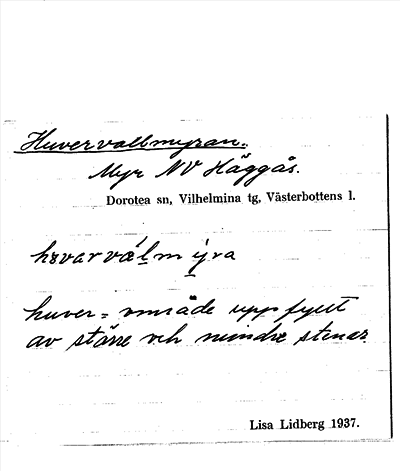 Huvervallmyran.
Myr NV Häggås.
Dorotea sn, Vilhelmina tg, Västerbottens l.
hʉvarvál̲m ý̲ra
huver = område uppfyllt
av större och mindre stenar.
Lisa Lidberg 1937.